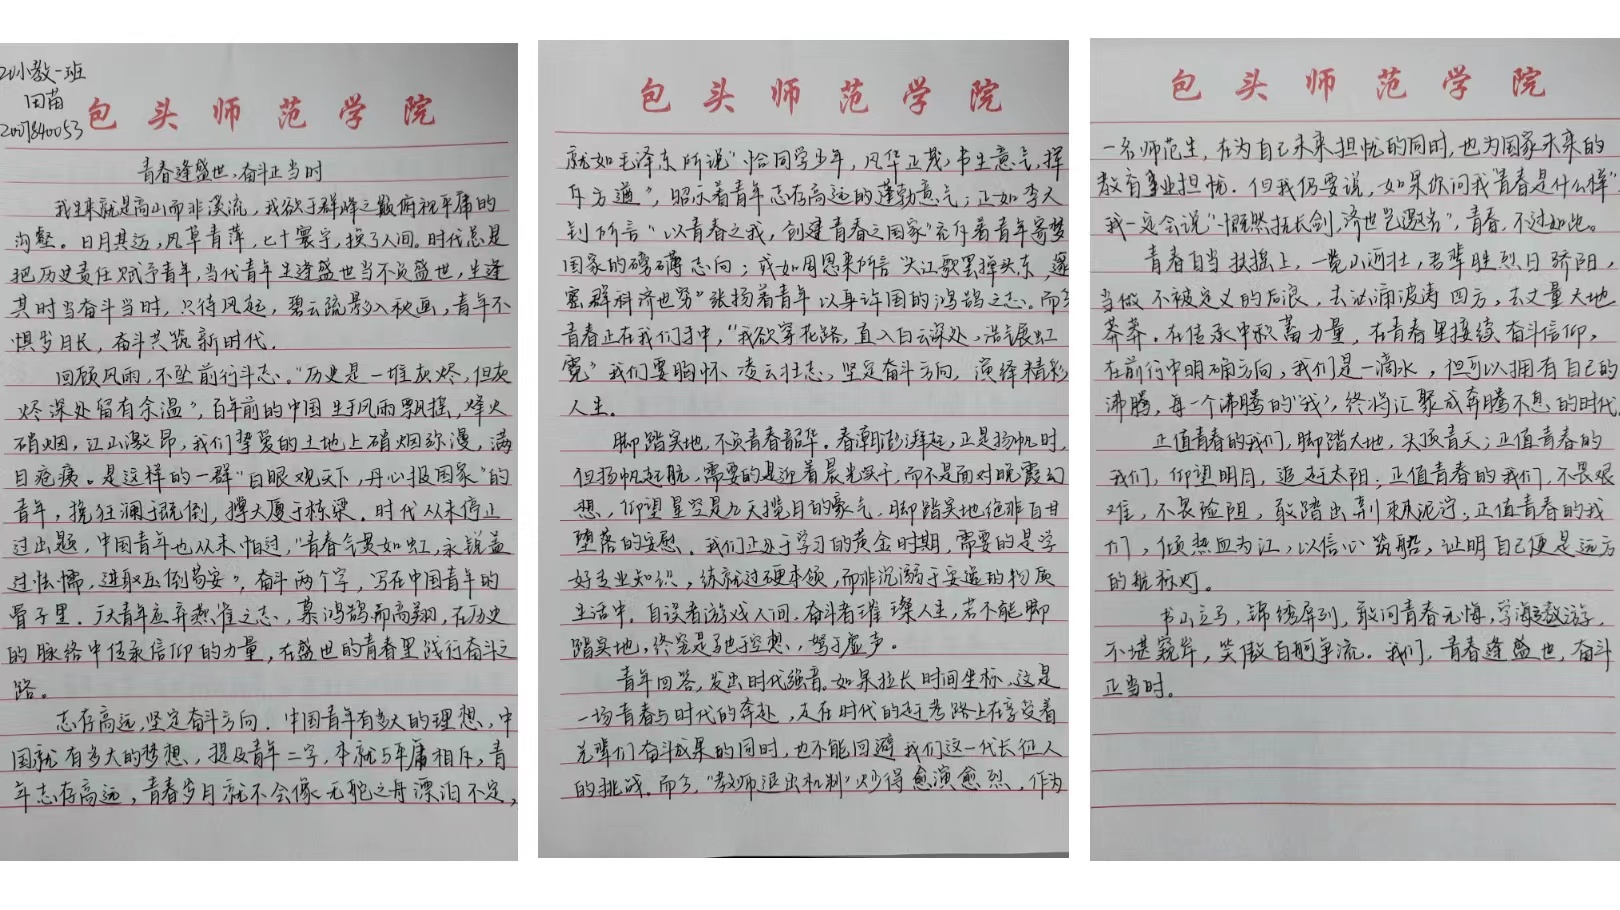 20小教一班
田苗
2007840053
包头师范学院
青春逢盛世,奋斗正当时
我生来就是高山而非溪流,我欲于群峰之巅俯视平庸的
沟壑。日月其迈,风草青萍,七十寰宇,换了人间。时代总是
把历史责任赋予青年,当代青年生逢盛世当不负盛世,生逢
其时当奋斗当时,只待风起,碧云疏影入秋画,青年不
惧岁月长,奋斗共筑新时代.
回顾风雨,不坠前行斗志。"历史是一堆灰烬,但灰
烬深处留有余温",百年前的中国生于风雨飘摇,烽火
硝烟,江山激昂,我们挚爱的土地上硝烟弥漫,满
目疮痍。是这样的一群"白眼观天下,丹心报国家"的
青年,挽狂澜于既倒,撑大厦于栋梁.时代从未停止
过出题,中国青年也从未怕过,"青春气贯如虹,永锐盖
过怯懦,进取压倒苟安",奋斗两个字,写在中国青年的
骨子里.广大青年应弃燕雀之志,慕鸿鹄而高翔,在历史
的脉络中传承信仰的力量,在盛世的青春里践行奋斗之
路。
志存高远,坚定奋斗方向.中国青年有多大的理想,中
国就有多大的梦想,提及青年二字,本就与平庸相斥,青
年志存高远,青春岁月就不会像无舵之舟漂泊不定,
包头师范学院
就如毛泽东所说"恰同学少年,风华正茂,书生意气,挥
斥方遒",昭示着青年志存高远的蓬勃意气;正如李大
钊所言"以青春之我,创建青春之国家"充斥着青年寄梦
国家的磅礴志向;或如周恩来所言"大江歌罢掉头东,邃
密群科济世穷"张扬着青年以身许国的鸿鹄之志。而今
青春正在我们手中,"我欲穿花路,直入白云深处,浩气展虹
霓"我们要胸怀凌云壮志,坚定奋斗方向,演绎精彩
人生.
脚踏实地,不负青春韶华.春潮澎湃起,正是扬帆时,
但扬帆起航,需要的是迎着晨光实干,而不是面对晚霞幻
想,仰望星空是九天揽月的豪气,脚踏实地绝非自甘
堕落的妄慰.我们正处于学习的黄金时期,需要的是学
好专业知识,练就过硬本领,而非沉溺于安逸的物质
生活中.自误者游戏人间,奋斗者璀璨人生,若不能脚
踏实地,终究是驰于空想,骛于虚声。
青年回答,发出时代强音.如果拉长时间坐标,这是
一场青春与时代的奔赴,走在时代的赶考路上在享受着
先辈们奋斗成果的同时,也不能回避我们这一代长征人
的挑战.而今,"教师退出机制"炒得愈演愈烈,作为
包头师范学院
一名师范生,在为自己未来担忧的同时,也为国家未来的
教育事业担忧.但我仍要说,如果你问我"青春是什么样"
我一定会说"慨然抚长剑,济世岂邀名",青春,不过如此。
青春自当扶摇上,一览山河壮,吾辈胜烈日骄阳,
当做不被定义的后浪,去汹涌波涛四方,去丈量大地
莽莽.在传承中积蓄力量,在青春里接续奋斗信仰,
在前行中明确方向,我们是一滴水,但可以拥有自己的
沸腾,每一个沸腾的"我",终将汇聚成奔腾不息的时代.
正值青春的我们,脚踏大地,头顶青天;正值青春的
我们,仰望明月,追赶太阳;正值青春的我们,不畏艰
难,不畏险阻,敢踏出荆棘泥泞;正值青春的我
们,倾热血为江,以信心筑船,证明自己便是远方
的航标灯。
书山立马,锦绣屏列,敢问青春无悔,学海遨游,
不堪窥岸,笑傲百舸争流.我们,青春逢盛世,奋斗
正当时.